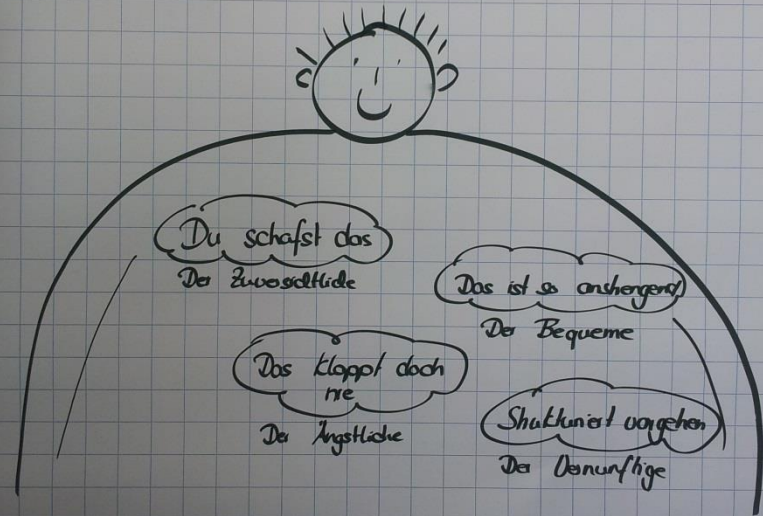 Du schafst das
Der Zuversichtliche
Das ist so anstrengend
Der Bequeme
Das klappt doch
nie
Der Ängstliche
Strukturiert vorgehen
Der Vernunftige